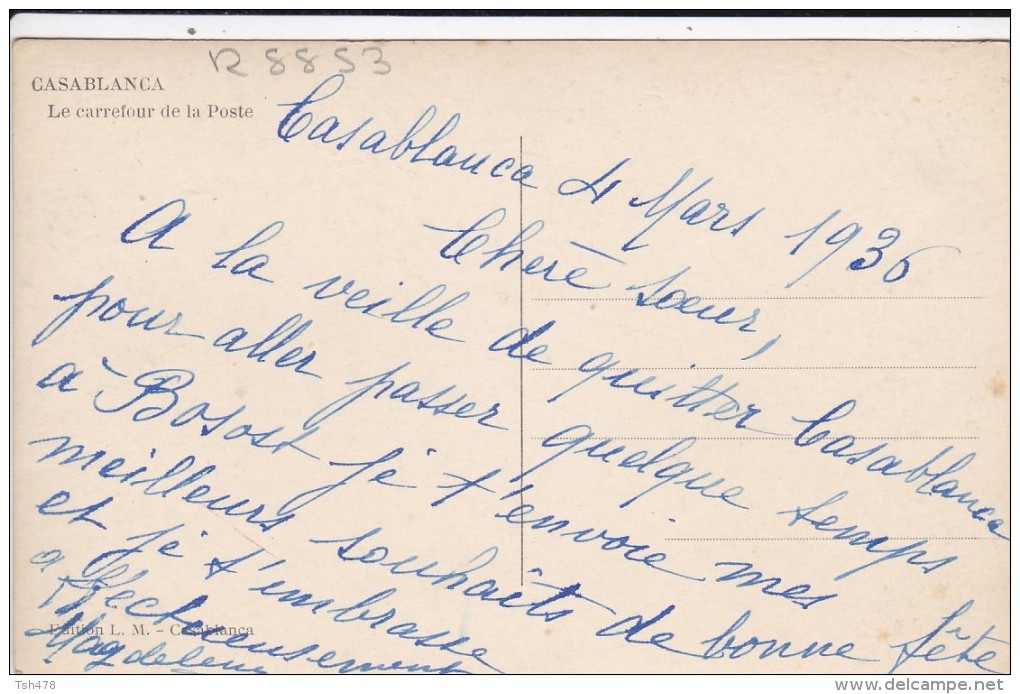 R 8853
CASABLANCA
Le carrefour de la Poste
Casablanca 4 Mars 1936
Chère sœur,
A la veille de quitter Casablanca
pour aller passer quelque temps
à Bosost je t'envoie mes
meilleurs souhaits de bonne fête
et je t'embrasse
affectueusement
Magdeleine
Edition L. M. - Casablanca
Tsh478
www.delcampe.net